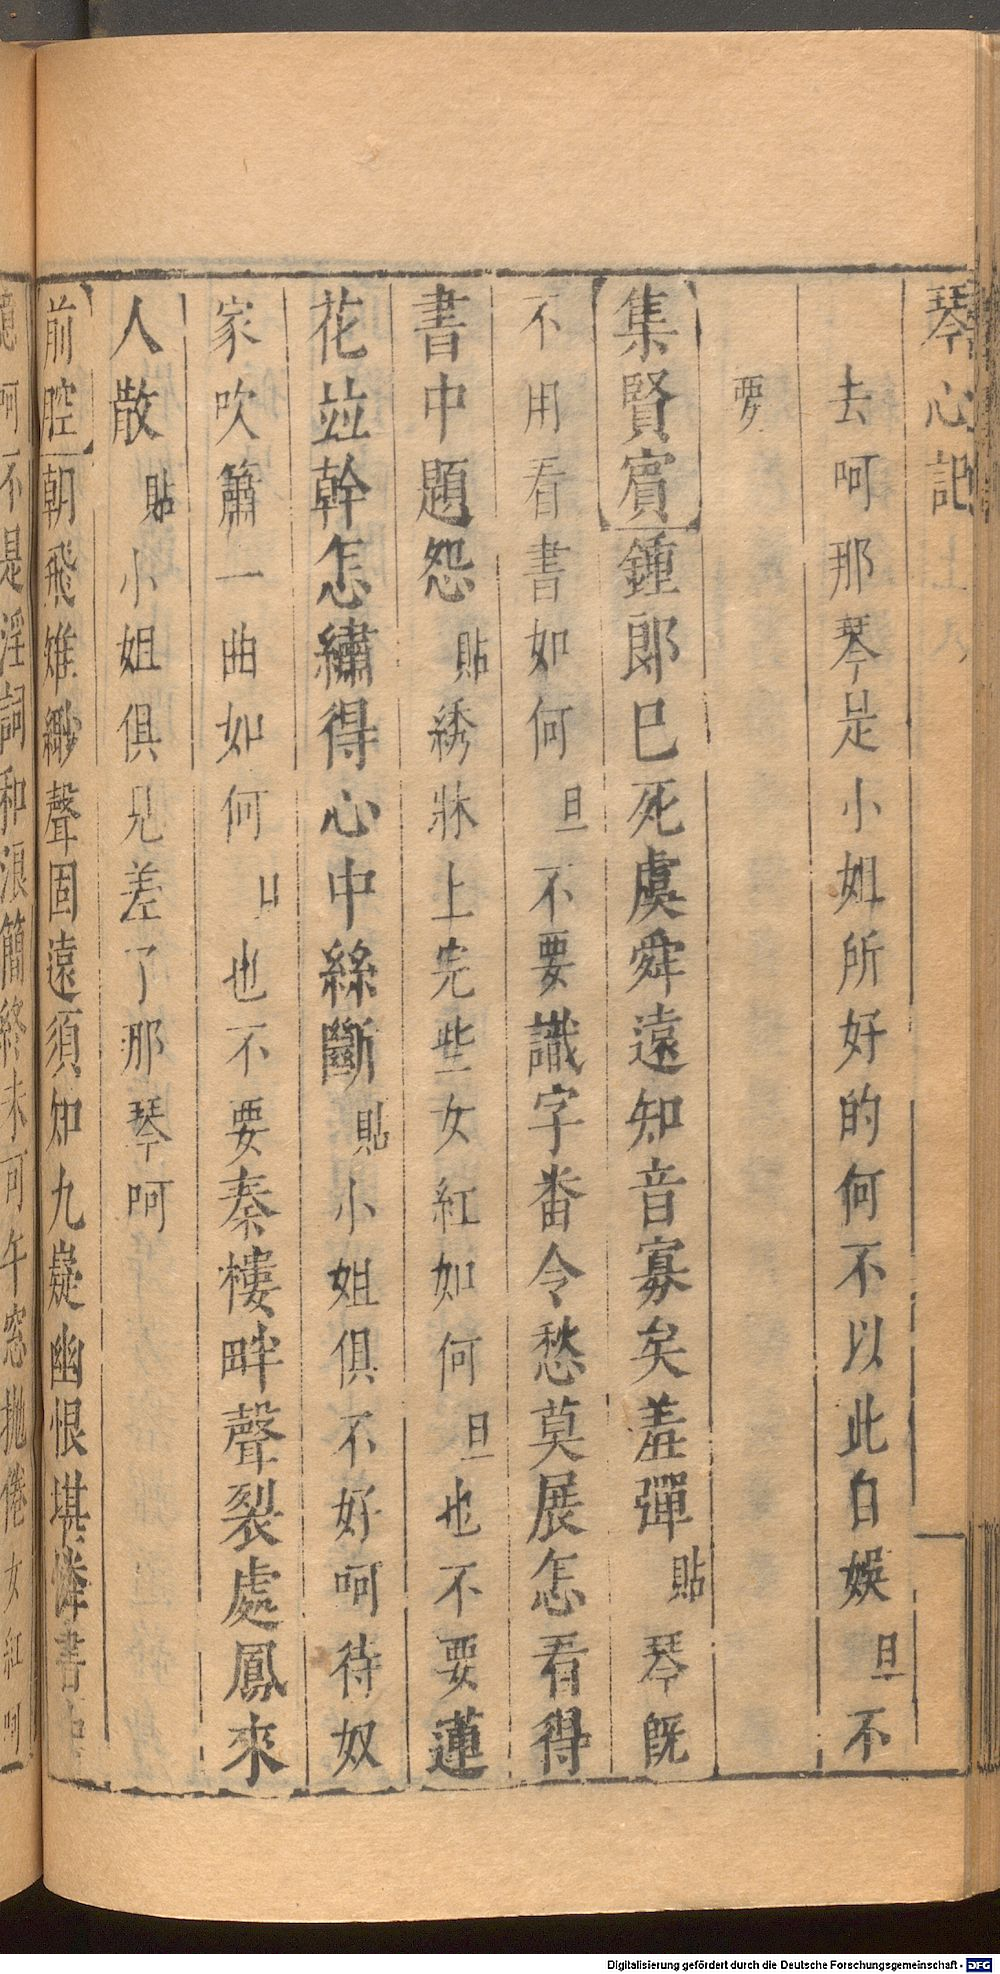 琴心記
去呵那琴是小姐所好的何不以此自娛旦不
要
集賢賓鍾郎巳死虞舜遠知音寡矣羞彈貼琴既
不用看書如何旦不要識字畨令愁莫展怎看得
書中題怨貼綉牀上完些女紅如何旦也不要蓮
花並幹怎繡得心中絲斷貼小姐俱不好呵待奴
家吹簫一曲如何旦也不要秦樓畔聲裂處鳳來
人散貼小姐俱見差了那琴呵
前腔朝飛雉緲聲固遠須知九嶷幽恨堪憐書中
呵不是淫詞和浪簡終未可午窓抛倦女紅呵
Digitalisierung gefördert durch die Deutsche Forschungsgemeinschaft - DFG